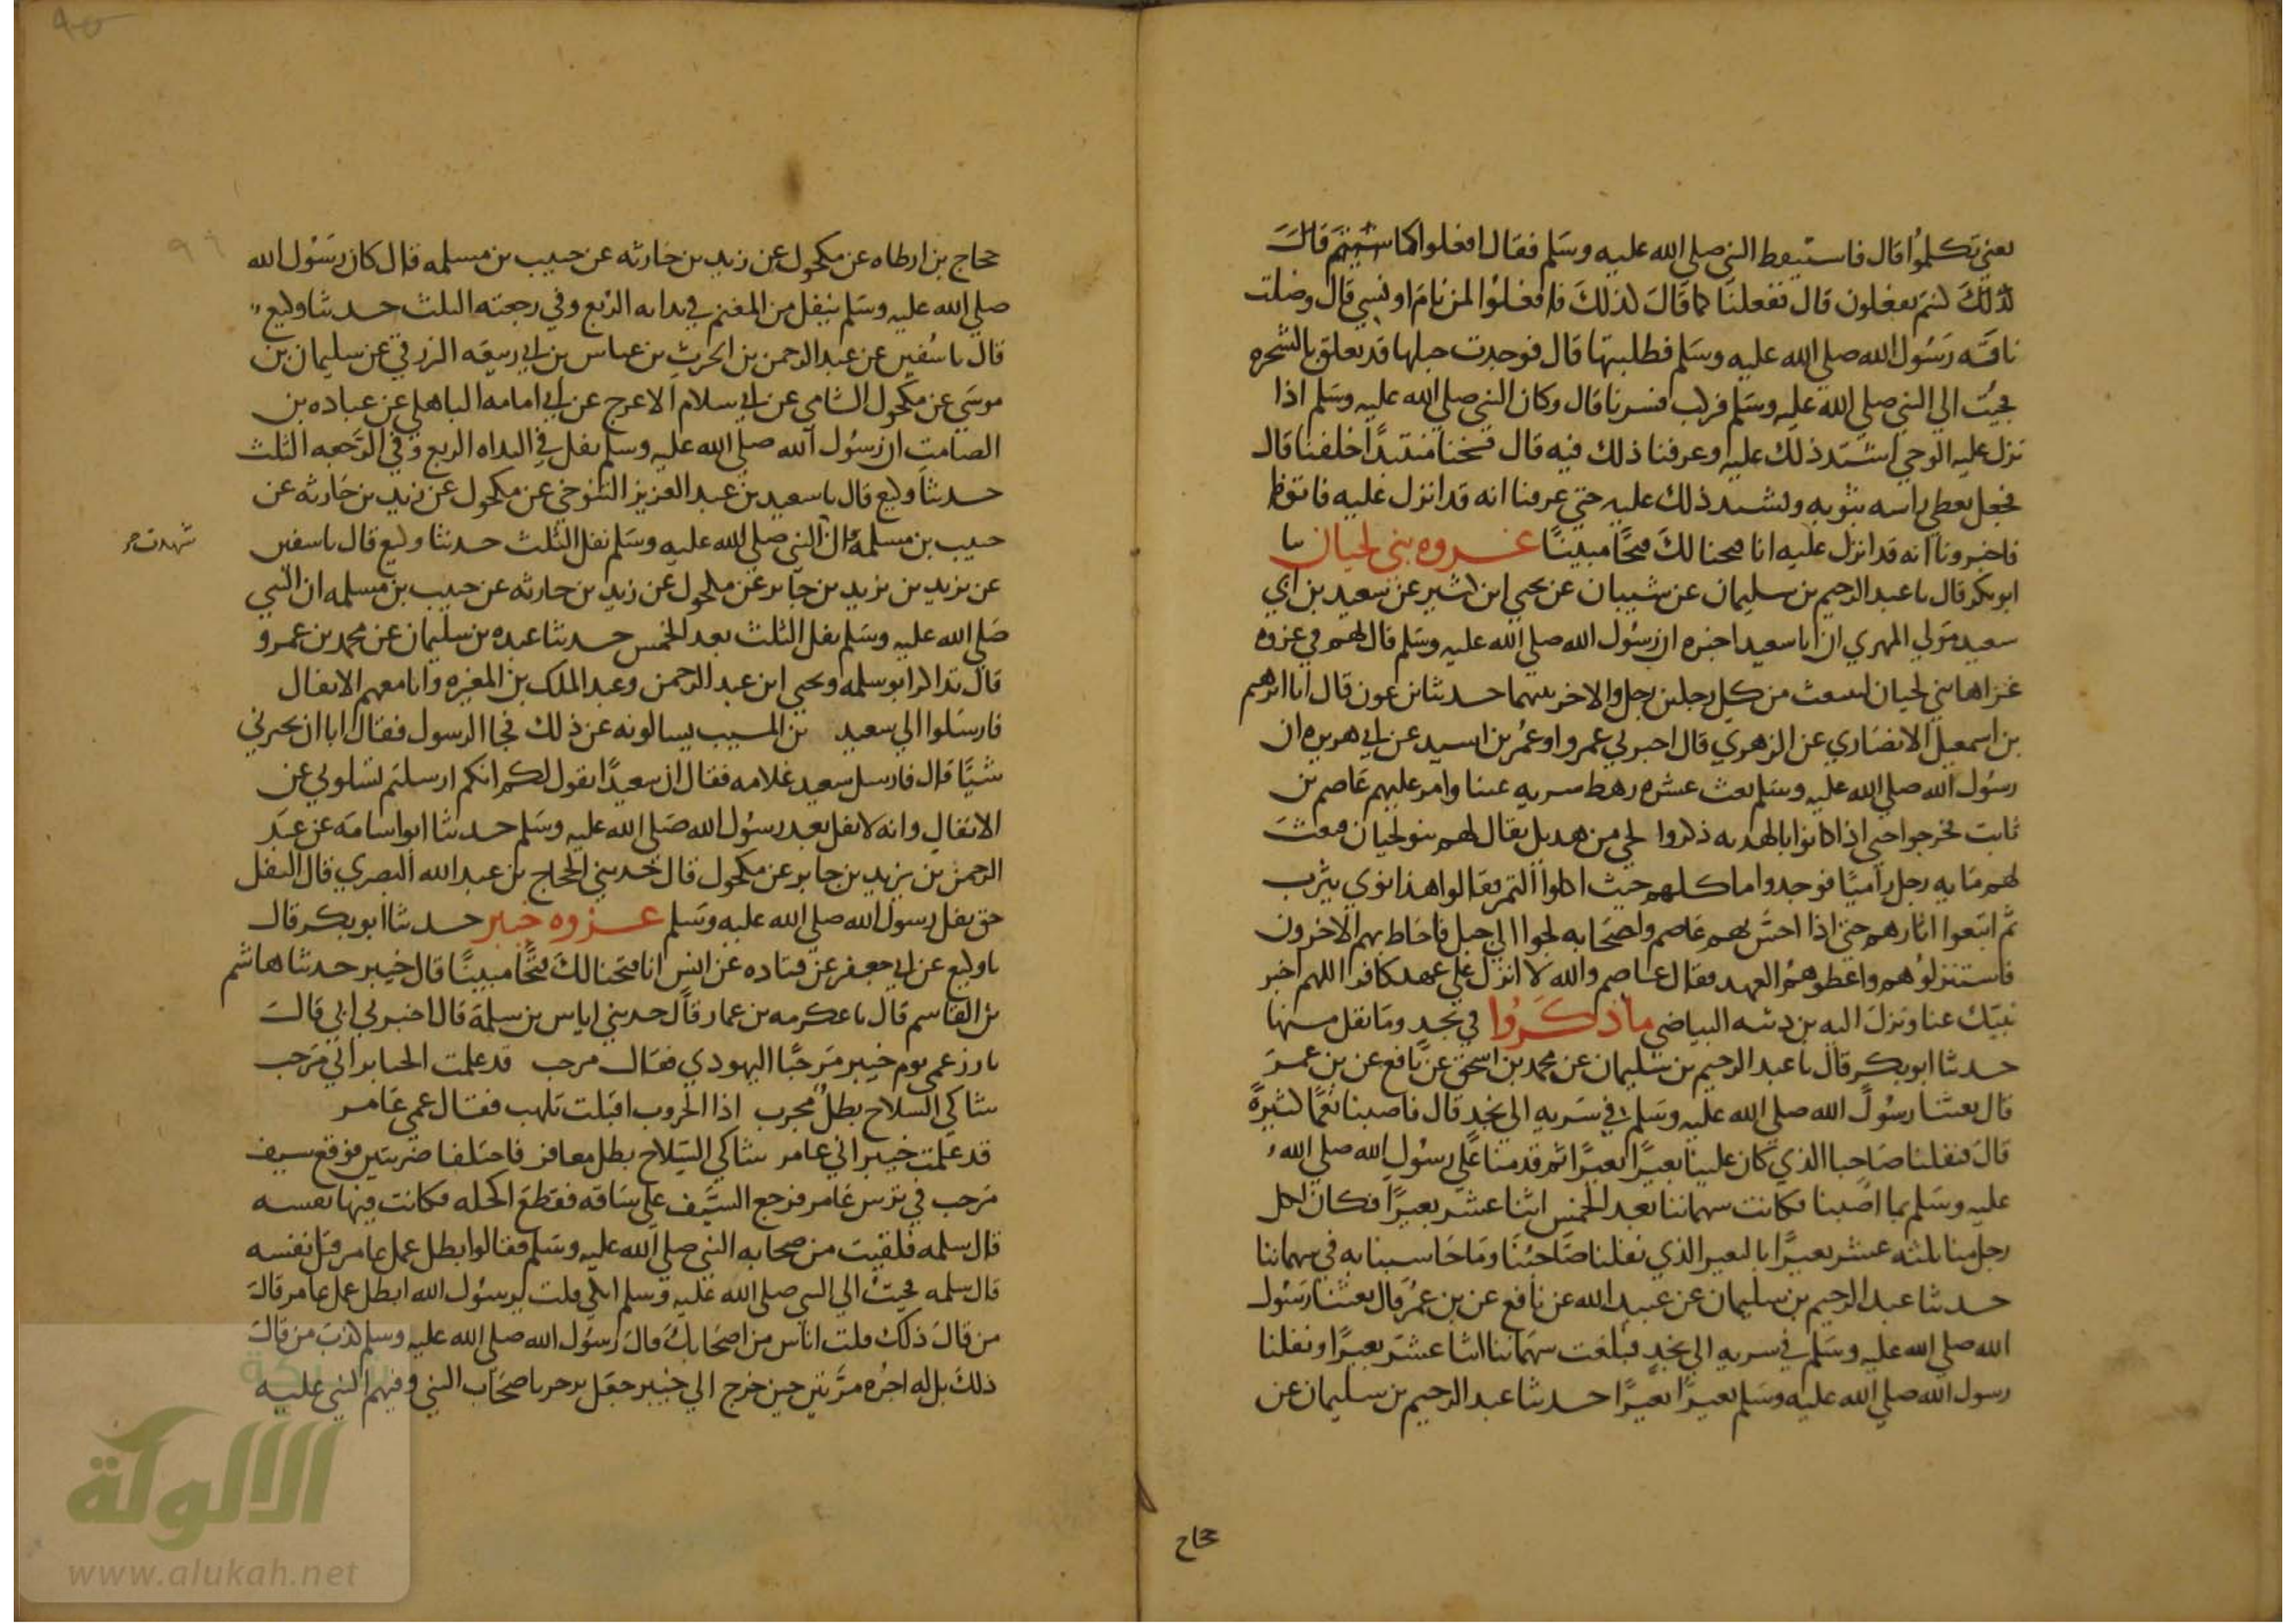 يعني تكلموا قال فاستيقظ النبي صلي الله عليه وسلم فقال افعلوا كما شيتم قال
كذلك كنتم تفعلون قال ففعلنا كما قال كذلك فافعلوا لمن نام او نسي قال وضلت
ناقه رسول الله صلي الله عليه وسلم فطلبتها قال فوجدت حبلها قد تعلق بالشجره
فجيت الي النبي صلي الله عليه وسلم فركب فسرنا قال وكان النبي صلي الله عليه وسلم اذا
نزل عليه الوحي اشتد ذلك عليه وعرفنا ذلك فيه قال فتنحنا منتبذا خلفنا قال
فجعل يغطي راسه بثوبه ويشتد ذلك عليه حتي عرفنا انه قد انزل عليه فاتونا
فاخبرونا انه قد انزل عليه انا فتحنا لك فتحا مبينا غزوه بني لحيان نا
ابوبكر قال نا عبد الرحيم بن سليمان عن شيبان عن يحيي ابن كثير عن سعيد بن ابي
سعيد مولي المهري ان ابا سعيد اخبره ان رسول الله صلي الله عليه وسلم قال لهم في غزوه
غزاها بني لحيان لينبعث من كل رجلين رجل والاخر بينهما حدثنا بن عون قال انا ابرهيم
بن اسمعيل الانصاري عن الزهري قال اخبرني عمرو او عمر بن اسيد عن ابي هريره ان
رسول الله صلي الله عليه وسلم بعث عشره رهط سريه عينا وامر عليهم عاصم بن
ثابت فخرجوا حتي اذا كانوا بالهده ذكروا لحي من هذيل يقال لهم بنو لحيان فبعث
لهم مايه رجل راميا فوجدوا ماكلهم حيث اكلوا التمر فقالوا هذا نوي يثرب
ثم اتبعوا اثارهم حتي اذا احس بهم عاصم واصحابه لجوا الي جبل فاحاط بهم الاخرون
فاستنزلوهم واعطوهم العهد فقال عاصم والله لا انزل علي عهد كافر اللهم اخبر
نبيك عنا ونزل اليه بن دثنه البياضي ما ذكروا في نجد وما نقل منها
حدثنا ابوبكر قال نا عبد الرحيم بن سليمان عن محمد بن اسحق عن نافع عن بن عمر
قال بعثنا رسول الله صلي الله عليه وسلم في سريه الي نجد قال فاصبنا نعما كثيرة
قال فنفلنا صاحبنا الذي كان علينا بعيرا بعيرا ثم قدمنا علي رسول الله صلي الله
عليه وسلم بما اصبنا فكانت سهماننا بعد الخمس اثنا عشر بعيرا فكان لكل
رجل منا ثلثه عشر بعيرا بالبعير الذي نفلنا صاحبنا وما حاسبنا به في سهماننا
حدثنا عبد الرحيم بن سليمان عن عبيد الله عن نافع عن بن عمر قال بعثنا رسول
الله صلي الله عليه وسلم في سريه الي نجد فبلغت سهماننا اثنا عشر بعيرا ونفلنا
رسول الله صلي الله عليه وسلم بعيرا بعيرا حدثنا عبد الرحيم بن سليمان عن
حجاج
حجاج بن ارطاه عن مكحول عن زيد بن حارثه عن حبيب بن مسلمه قال كان رسول الله
صلي الله عليه وسلم ينفل من المغنم في بدايه الربع وفي رجعته الثلث حدثنا وكيع
قال نا سفين عن عبد الرحمن بن الحرث بن عياس بن ابي ربيعه الزرقي عن سليمان بن
موسي عن مكحول الشامي عن ابي سلام الاعرج عن ابي امامه الباهلي عن عباده بن
الصامت ان رسول الله صلي الله عليه وسلم نفل في البداه الربع وفي الرجعه الثلث
حدثنا وكيع قال نا سعيد بن عبد العزيز التنوخي عن مكحول عن زيد بن حارثه عن
حبيب بن مسلمة قال النبي صلي الله عليه وسلم نفل الثلث حدثنا وكيع قال نا سفين
شهدت
عن يزيد بن يزيد بن جابر عن مكحول عن زيد بن حارثه عن حبيب بن مسلمه ان النبي
صلي الله عليه وسلم نفل الثلث بعد الخمس حدثنا عبده بن سليمان عن محمد بن عمرو
قال تذاكر ابو سلمه ويحيي ابن عبد الرحمن وعبد الملك بن المغيره وانا معهم الانفال
فارسلوا الي سعيد بن المسيب يسالونه عن ذلك فجا الرسول فقال ابا ان يخبرني
شيا قال فارسل سعيد غلامه فقال ان سعيدا يقول لكم انكم ارسلتم تسلوني عن
الانفال وانه لا نفل بعد رسول الله صلي الله عليه وسلم حدثنا ابو اسامه عن عبد
الرحمن بن يزيد بن جابر عن مكحول قال حدثني الحجاج بن عبد الله البصري قال النفل
حق نفل رسول الله صلي الله عليه وسلم غزوه خيبر حدثنا ابو بكر قال
نا وكيع عن ابي جعفر عن قتاده عن انس انا فتحنا لك فتحا مبينا قال خيبر حدثنا هاشم
بن القاسم قال نا عكرمه بن عمار قال حدثني اياس بن سلمة قال اخبرني ابي قال
بارز عمي يوم خيبر مرحبا اليهودي فقال مرحب قد علمت الخيابر اني مرحب
شاكي السلاح بطل مجرب اذا الحروب اقبلت تلهب فقال عمي عامر
قد علمت خيبر اني عامر شاكي السلاح بطل معافر فاختلفا ضربتين فوقع سيف
مرحب في ترس عامر فرجع السيف علي ساقه فقطع اكحله فكانت فيها نفسه
قال سلمه فلقيت من صحابه النبي صلي الله عليه وسلم فقالوا بطل عمل عامر قتل نفسه
قال سلمه فجيت الي النبي صلي الله عليه وسلم ابكي قلت يرسول الله ابطل عمل عامر قال
من قال ذلك قلت اناس من اصحابك قال رسول الله صلي الله عليه وسلم كذب من قال
ذلك بل له اجره مرتين حين خرج الي خيبر جعل يرجز باصحاب النبي وفيهم النبي عليه
شبكة
الألوكة
www.alukah.net